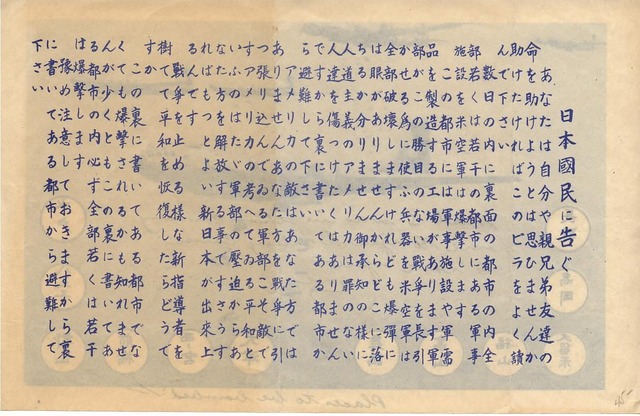 日本國民に告ぐ
あなたは自分や親兄弟友達の
命を助けようとは思ひませんか
助けたければこのビラをよく讀
んで下さい
数日の内に裏面の都市の内全
部若くは若干の都市にある軍事
施設を米空軍は爆撃します
この都市には軍事施設や軍需
品を製造する工場があります軍
部がこの勝目のない戦争を長引
かせる為に使ふ兵器を米空軍は
全部破壊しますけれども爆彈に
は眼がありませんからどこに落
ちるか分りません御承知の様に
人道主義のアメリカは罪のない
人達を傷つけたくはありません
ですから裏に書いてある都市か
ら避難して下さい
アメリカの敵はあなた方では
ありませんあなた方を戦争に引
つ張り込んでゐる軍部こそ敵で
すアメリカの考へてゐる平和と
いふのはたゞ軍部の壓迫からあ
なた方を解放する事ですさうす
ればもつとよい新日本が出來上
るんです
戦争を止める様な新指導者を
樹てゝ平和を恢復したらどうで
すか
この裏に書いてある都市でな
くても爆撃されるかも知れませ
んが少くともこの裏に書いてあ
る都市の内必ず全部若くは若干
は爆撃します
豫め注意しておきますから裏
に書いてある都市から避難して
下さい